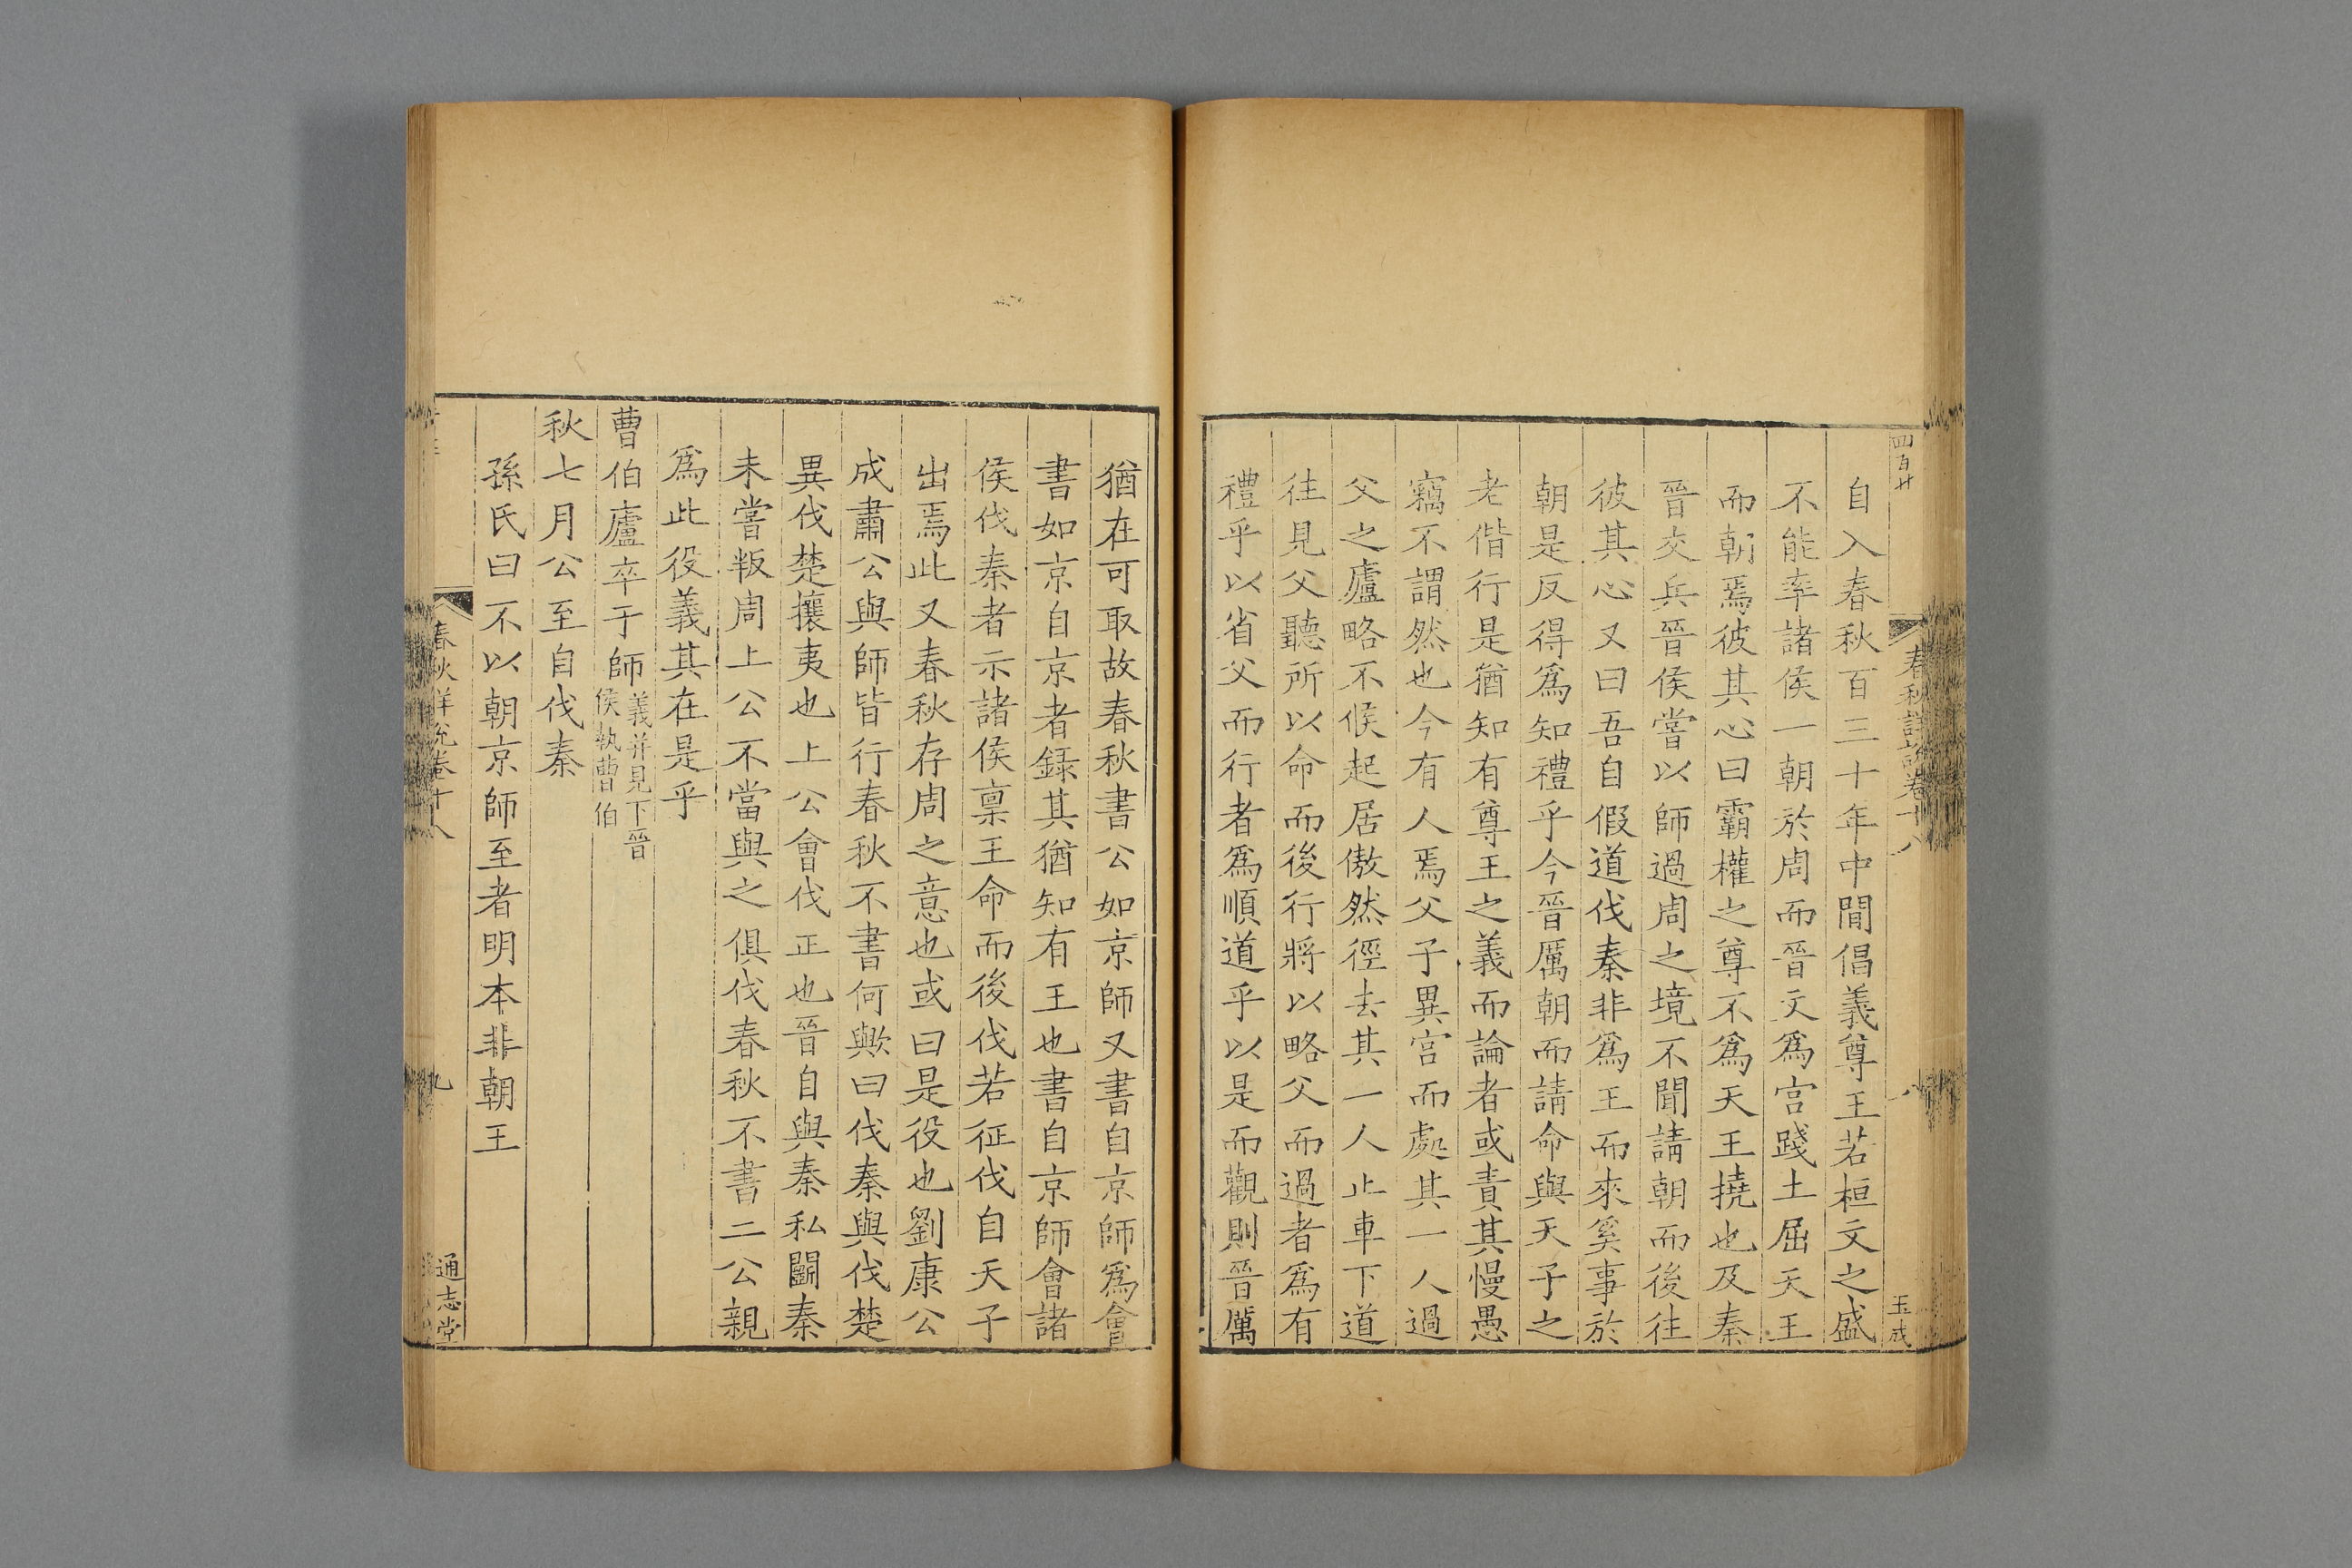 四百廿
春秋詳說卷十八
八
玉成
自入春秋百三十年中閒倡義尊王若桓文之盛
不能率諸侯一朝於周而晉文爲宮踐土屈天王
而朝焉彼其心曰霸權之尊不爲天王撓也及秦
晉交兵晉侯嘗以師過周之境不聞請朝而後往
彼其心又曰吾自假道伐秦非爲王而來奚事於
朝是反得爲知禮乎今晉厲朝而請命與天子之
老偕行是猶知有尊王之義而論者或責其慢愚
竊不謂然也今有人焉父子異宮而處其一人過
父之廬略不候起居傲然徑去其一人止車下道
往見父聽所以命而後行將以略父而過者爲有
禮乎以省父而行者爲順道乎以是而觀則晉厲
猶在可取故春秋書公如京師又書自京師爲會
書如京自京者錄其猶知有王也書自京師會諸
侯伐秦者示諸侯稟王命而後伐若征伐自天子
出焉此又春秋存周之意也或曰是役也劉康公
成肅公與師皆行春秋不書何歟曰伐秦與伐楚
異伐楚攘夷也上公會伐正也晉自與秦私鬭秦
未嘗叛周上公不當與之俱伐春秋不書二公親
爲此役義其在是乎
曹伯廬卒于師義并見下晉侯執曹伯
秋七月公至自伐秦
孫氏曰不以朝京師至者明本非朝王
春秋詳說卷十八
九
通志堂